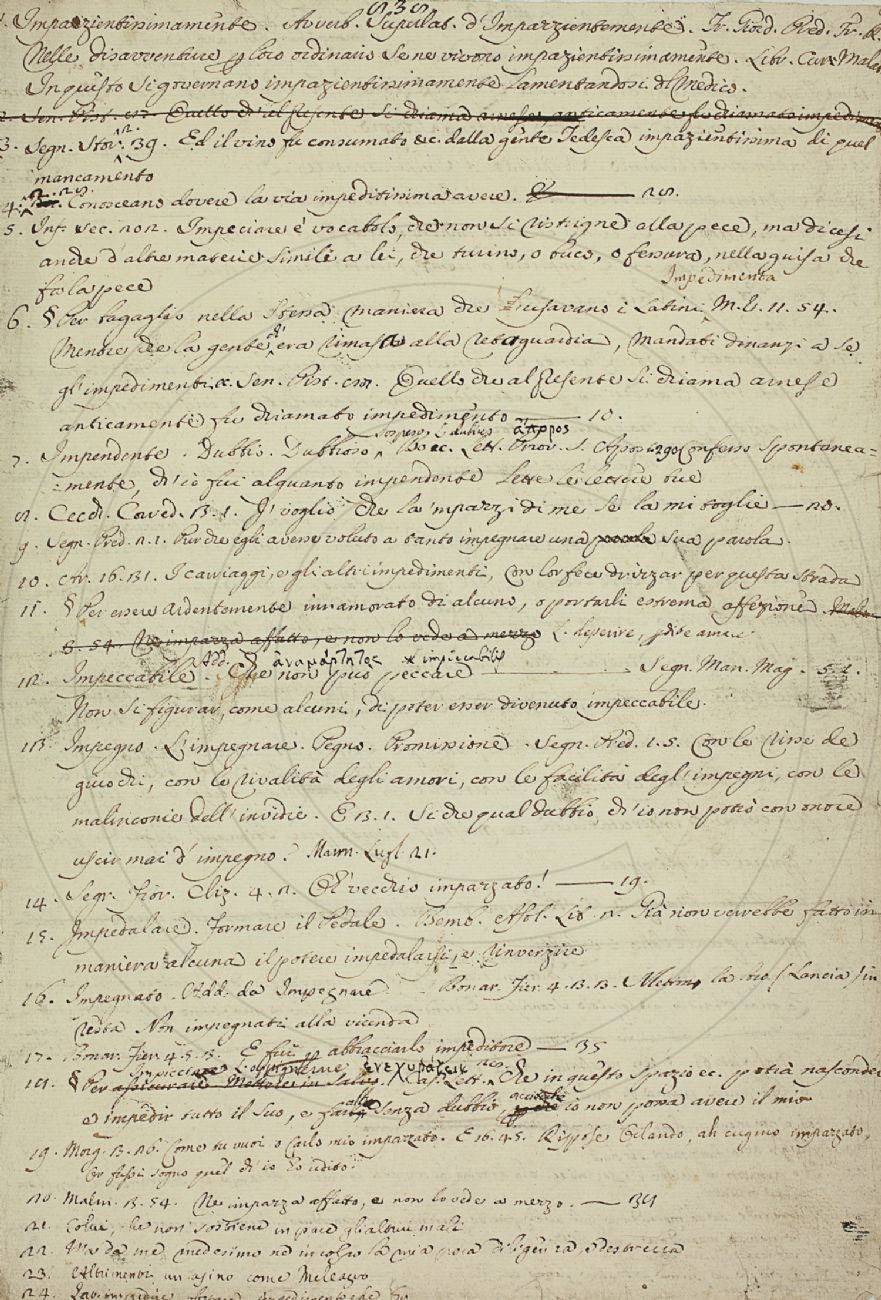 535
1. Impazientissimamente. Avverb. Superlat. d'Impazientemente. Fr. Giord. Pred. Fr. R.
Nelle disavventure p loro ordinario se ne vivono impazientissimamente. Libr. Cur. Malat.
In questo si governano impazientissimamente lamentandosi del medico.
2. Sen. Pist. Quello ch'al presente si chiama arnese, anticamente fu chiamato impedim
3. Segn. Stor. 2. 39. Ed il vino fu consumato &c. dalla gente Tedesca impazientissima di quel
mancamento
4. 2. 25. Conosceano dovere la via impeditissima avere. 25.
5. Inf. sec. 202. Impeciare è vocabolo, che non si ristrigne alla pece, ma dicesi
anche d'altre materie simili a lei, che turino, o buco, o fessura, nella guisa che
fa la pece
Impedimenta
6. § Per bagaglio nella stessa maniera che l'usavano i Latini M.V. 11. 54.
Mentre che la gente ch' era rimasa alla retroguardia, mandati dinanzi a se
gl'impedimenti &c. Sen. Pist. Quello che al presente si chiama arnese
anticamente fu chiamato impedimento 10.
Sospeso, dubbio ἄπορος
7. Impendente. Dubbio. Dubbioso, Bocc. Lett. Prior. S. Apost. 290 Confesso spontanea=
=mente, ch'io fui alquanto impendente lette le lettere tue
8. Cecch. Corred. 3. 1. I' voglio che la 'mpazzi di me se la mi toglie 20.
9. Segn. Pred. 2. 1. Purchè egli avesse voluto a tanto impegnare una parola sua parola.
10. Ar. 16. 31. I carriaggi, e gli altri impedimenti, Con lor fece drizzar per questa strada
11. § Per essere ardentemente innamorato di alcuno, o portarli estrema affezione Malm.
8. 54. Ne impazza affatto, e non lo vede a mezzo L.
12. Impeccabile. Add. Che non può peccare ἀναμάρτητος impeccabilis Segn. Man. Mag. 5. 1.
Non si figurar, come alcuni, di poter esser divenuto impeccabile.
13. Impegno. L'impegnare. Pegno. Promissione. Segn. Pred. 1. 5. Con le risse de
giuochi, con le rivalità degli amori, con le facilità degl'impegni, con le
malinconie dell'invidie. E 3. 1. Sicchè qual dubbio, ch'io non potrò con onore
uscir mai d'impegno? 21.
14. Segr. Fior. Cliz. 4. 2. Oh vecchio impazzato! 19.
15. Impedalare. Formare il Pedale. Bemb. Asol. Lib. 2. Già non verrebbe fatto in
maniera alcuna il potere impedalarsi, e rinverzire
16. Impegnato. Add. da Impegnare Bonar. Fier. 4. 3. 3. Metton la lor (Lancia) in
resta Non impegnati alla vicenda
17. Bonar. Fier. 4. 5. 3. E fui p abbracciarlo impeditore 35
18. § Per assicurare Mettere in salvo. ἐνεχυράζειν Cas. Lett. Che in questo spazio ec. potrà nasconder
e impedir tutto il suo, e farà senza dubbio, che io non possa avere il mio
19. Morg. 3. 26. Come tu vuoi o Carlo mio impazzato. E 16. 45. Rispose Orlando, ah cugino impazzato,
Or fussi sogno quel ch'io ho udito!
20. Malm. 3. 54. Ne impazza affatto, e non lo vede a mezzo. 34
21. Colui, che non sostiene in pace gli altrui mali
22. Ma da me medesimo nè incolpo la mia poca diligenza, e destrezza
23. Altrimenti un asino come Meleagro
24.